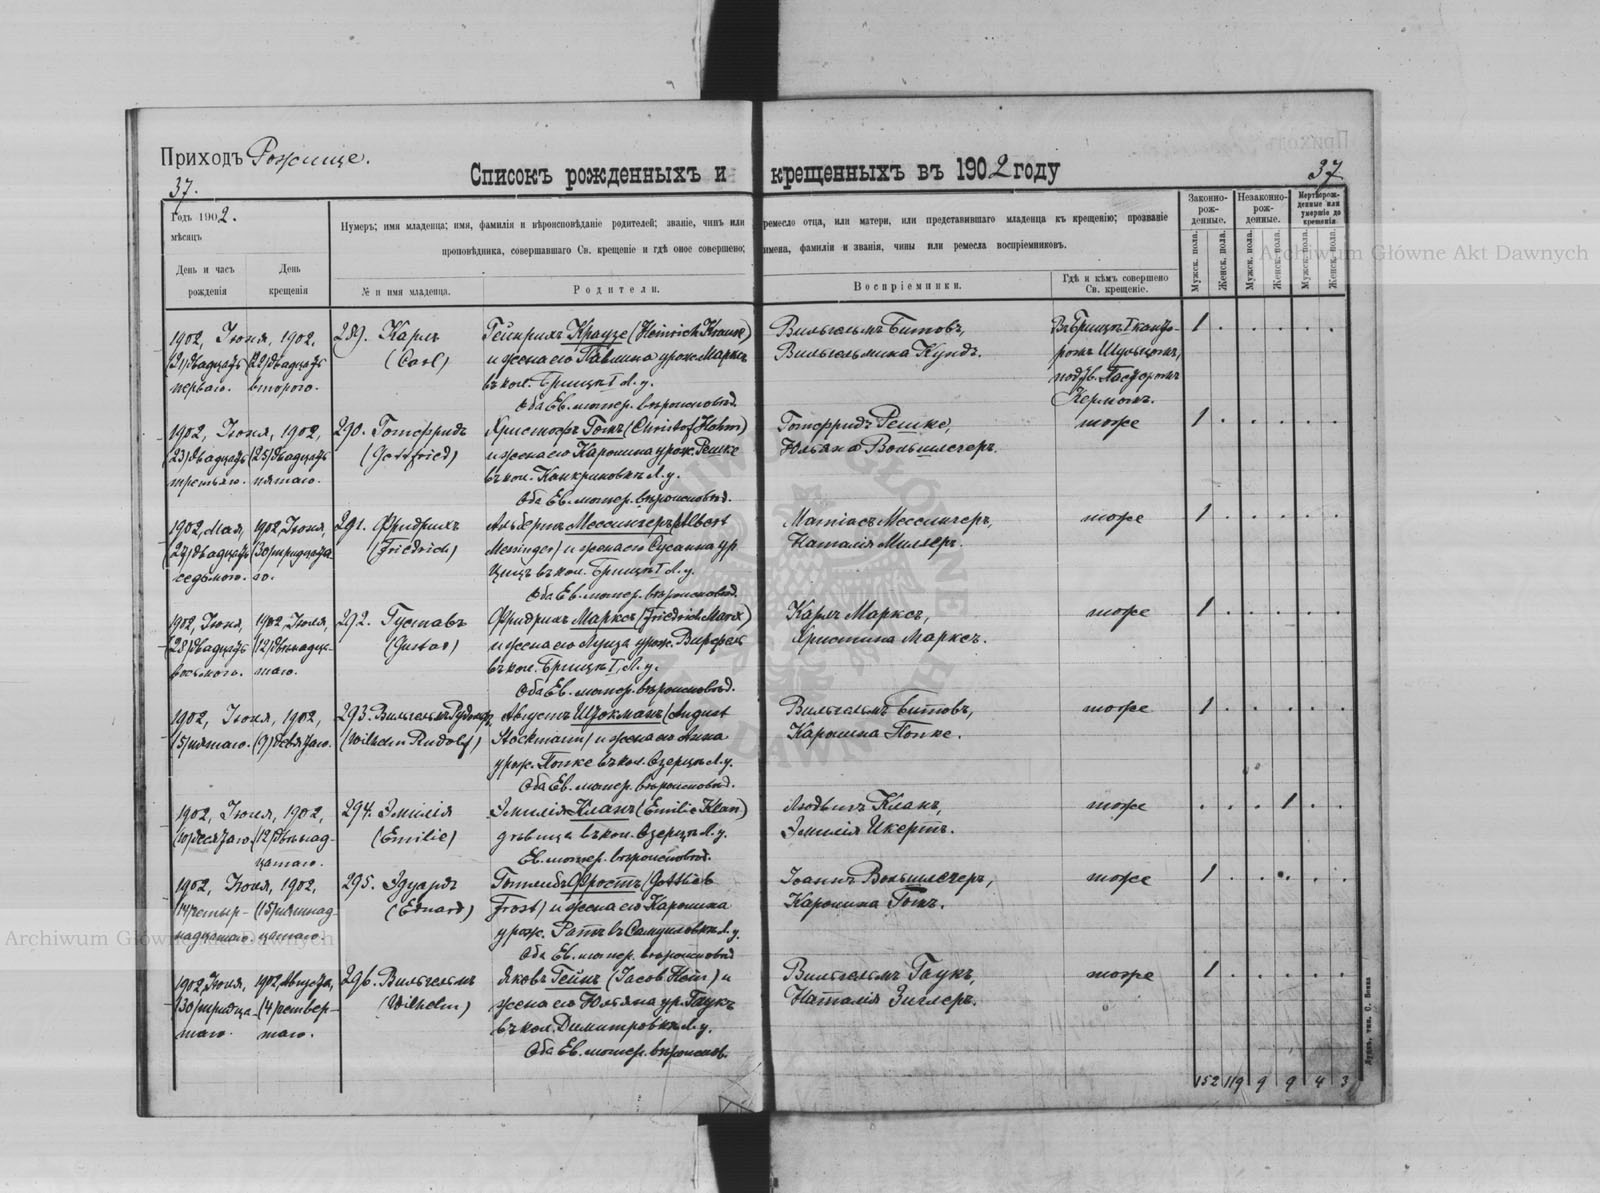 Приходъ Рожище.
37.
Списокъ рожденныхъ и крещенныхъ въ 1902 году
37
Годъ 1902.
мѣсяцъ
День и часъ рожденія
День крещенія
Нумеръ; имя младенца; имя, фамилія и вѣроисповѣданіе родителей; званіе, чинъ или ремесло отца, или матери, или представившаго младенца къ крещенію; прозваніе
проповѣдника, совершавшаго Св. крещеніе и гдѣ оное совершено; имена, фамиліи и званія, чины или ремесла воспріемниковъ.
№ и имя младенца.
Родители.
Воспріемники.
Гдѣ и кѣмъ совершено Св. крещеніе.
Законно-рож-денные.
Незаконно-рож-денные.
Мертворож-денные или умершіе до крещенія.
Мужск. пола.
Женск. пола.
Мужск. пола.
Женск. пола.
Мужск. пола.
Женск. пола.
1902, Іюня, 1902. 289. Карлъ Гейнрихъ Краузе (Heinrich Krause) Вильгельмъ Битовъ, Въ Брищкѣ I кантo- 1
(21) двадцать (22) двадцать (Carl) и жена его Павлина урож. Марксъ Вильгельмина Кундъ. ромъ Шульцомъ,
перваго. второго. въ кол. Брищкѣ I Л. у. подтв. Пасторомъ
Оба Ев. лютер. вѣроисповѣд. Кермомъ.
1902, Іюня, 1902, 290. Готфридъ Христофъ Гомъ (Christof Hohm) Готфридъ Решке, тоже 1
(23) двадцать (25) двадцать (Gottfried) и жена его Каролина урож. Решке Юльяна Вольшлегеръ.
третьяго. пятаго. въ кол. Канкриновкѣ Л. у.
Оба Ев. лютер. вѣроисповѣд.
1902, Мая, 1902, Іюня, 291. Фридрихъ Альбертъ Мессингеръ (Albert Матіасъ Мессингеръ, тоже 1
(27) двадцать (30) тридцата (Friedrich) Messinger) и жена его Сусанна ур. Наталія Миллеръ.
седьмого. го. въ кол. Брищкѣ I Л. у.
Оба Ев. лютер. вѣроисповѣд.
1902, Іюня, 1902, Іюля, 292. Густавъ Фридрихъ Марксъ (Friedrich Marx) Карлъ Марксъ, тоже 1
(28) двадцать (12) двѣнадца- (Gustav) и жена его Луиза урож. Христина Марксъ.
восьмого. таго. въ кол. Брищкѣ I, Л. у.
Оба Ев. лютер. вѣроисповѣд.
1902, Іюня, 1902, 293. Вильгельмъ Рудольфъ Августъ Штокманъ (August Вильгельмъ Битовъ, тоже 1
(5) пятаго. (9) девятаго. (Wilhelm Rudolf) Stockmann) и жена его Анна Каролина Попке.
урож. Попке въ кол. Озерцѣ Л. у.
Оба Ев. лютер. вѣроисповѣд.
1902, Іюня, 1902, 294. Эмилія Эмилія Кланъ (Emilie Klan) Людвигъ Кланъ, тоже 1
(10) десятаго. (12) двѣнад- (Emilie) дѣвица въ кол. Озерцѣ Л. у. Эмилія Икертъ.
цатаго. Ев. лютер. вѣроисповѣд.
1902, Іюня, 1902, 295. Эдуардъ Готлибъ Фростъ (Gottlieb Іоаннъ Вольшлегеръ, тоже 1
(14) четыр- (15) пятнад- (Eduard) Frost) и жена его Каролина Каролина Гомъ.
надцатаго. цатаго. урож. Ратъ въ Самуиловкѣ Л. у.
Оба Ев. лютер. вѣроисповѣд.
1902, Іюня, 1902, Августа, 296. Вильгельмъ Яковъ Геймъ (Jacob Heim) и Вильгельмъ Гаукъ, тоже 1
(30) тридца- (4) четвер- (Wilhelm) жена его Юльяна ур. Гаукъ Наталія Зиглеръ.
таго. таго. въ кол. Димитровкѣ Л. у.
Оба Ев. лютер. вѣроиспов.
152 119 9 9 4 3
Archiwum Główne Akt Dawnych
Archiwum Główne Akt Dawnych